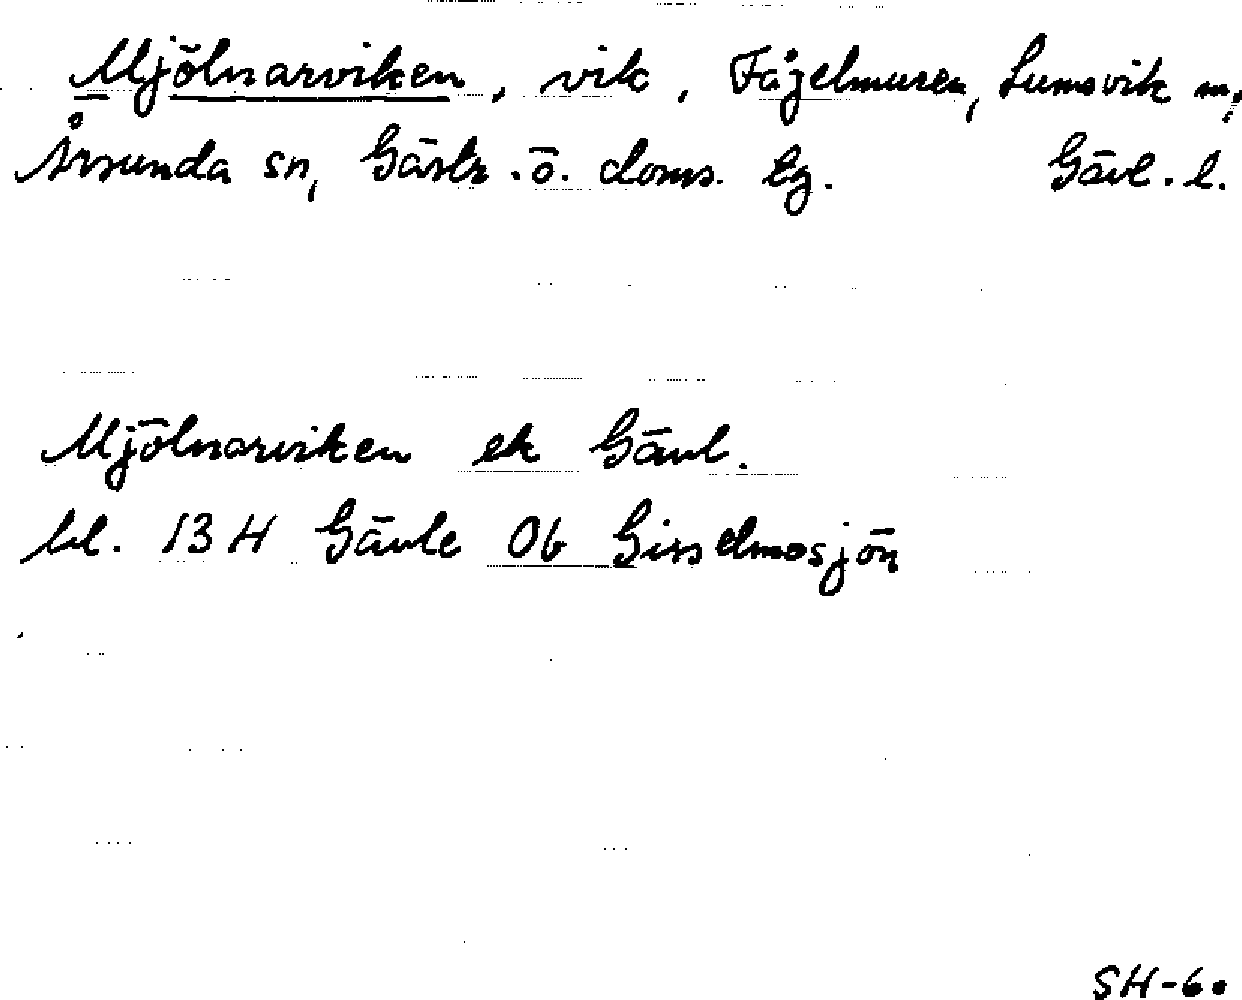 Mjölnarviken, vik, Fågelmuren, Lumsvik m,
Årsunda sn, Gästr. ö. doms. lg. Gävl. l.
Mjölnarviken ek Gävl.
bl. 13 H Gävle 0b Gisselmosjön
SH-60